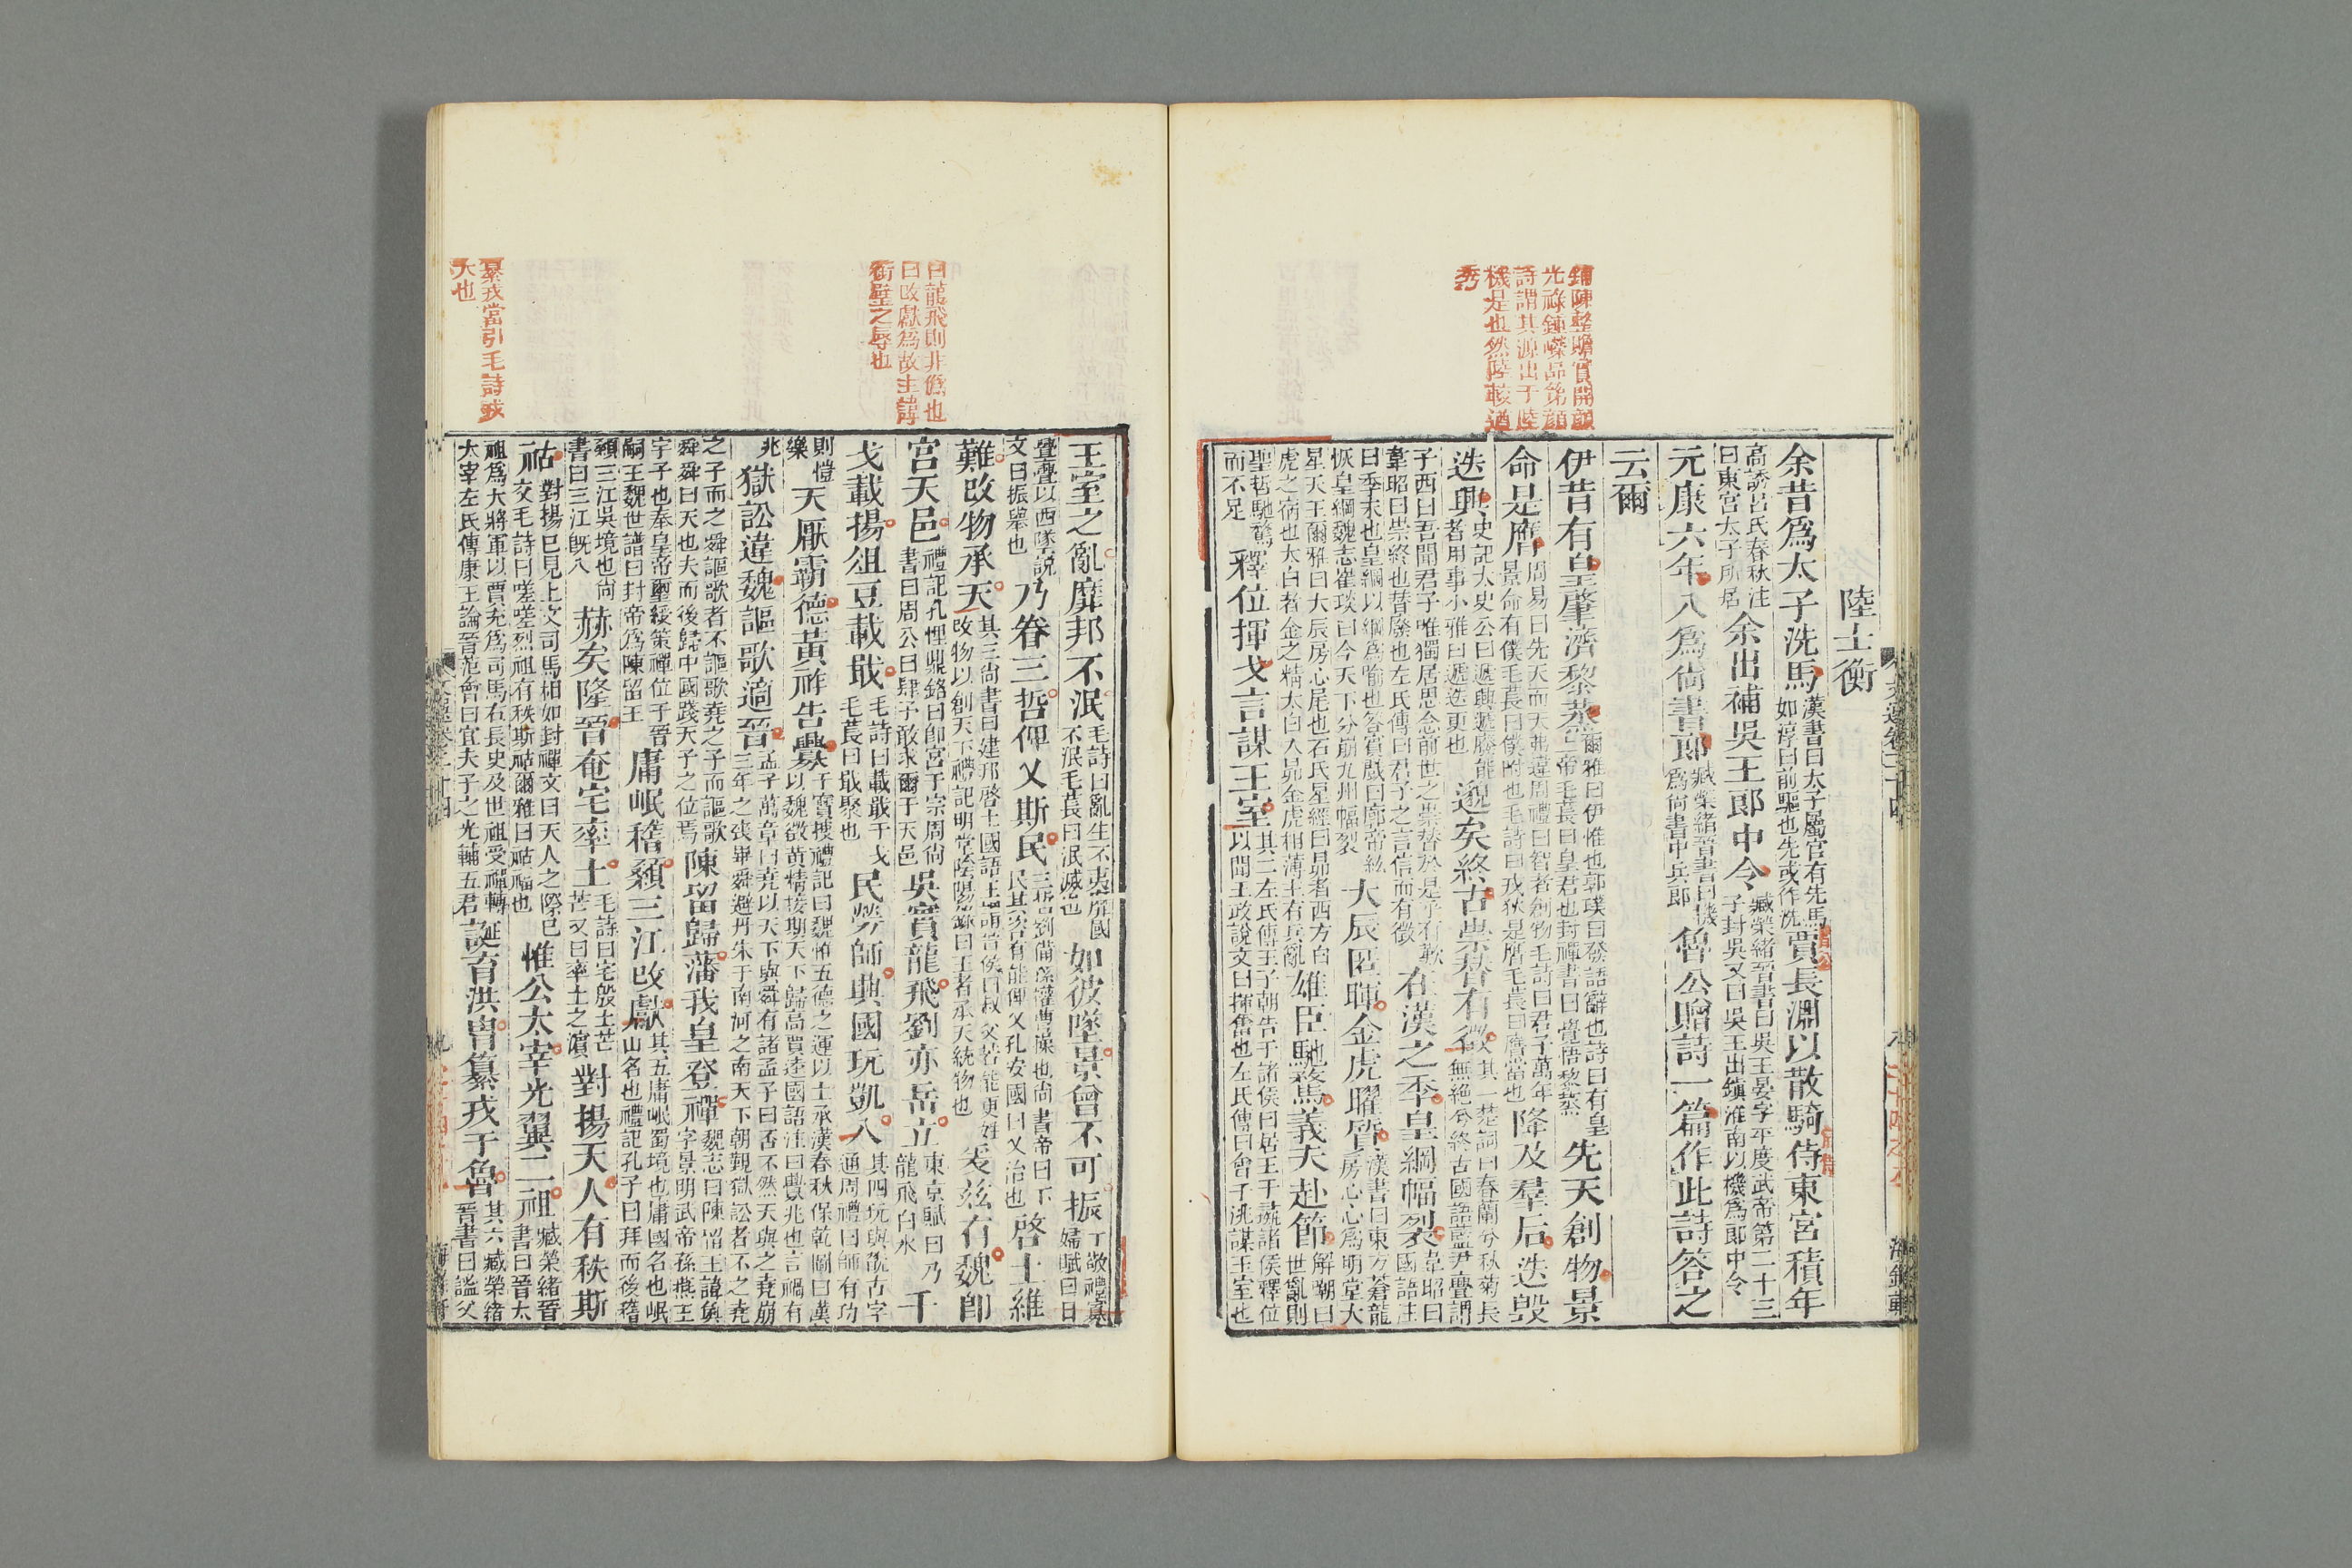 鋪陳整贍實開顔
光祿鍾嶸品第顔
詩謂其源出于陸
機是也然陸較遒
秀
陸士衡
余昔爲太子洗馬漢書曰太子屬官有先馬如淳曰前驅也先或作洗賈長淵以散騎侍東宮積年
高誘呂氏春秋注曰東宮太子所居余出補吳王郎中令臧榮緒晉書曰吳王晏字平度武帝第二十三子封吳又曰吳王出鎭淮南以機爲郎中令
元康六年入爲尚書郎臧榮緒晉書曰機爲尚書中兵郎魯公贈詩一篇作此詩答之
云爾
伊昔有皇肇濟黎蒸爾雅曰伊惟也郭璞曰發語辭也詩曰有皇上帝毛萇曰皇君也封禪書曰覺悟黎蒸先天創物景
命是膺周易曰先天而天弗違周禮曰智者創物毛詩曰君子萬年景命有僕毛萇曰僕附也毛詩曰戎狄是膺毛萇曰膺當也降及羣后迭毀
迭興史記太史公曰遞興遞廢能者用事小雅曰遞迭更也邈矣終古崇替有徵其一楚詞曰春蘭兮秋菊長無絶兮終古國語藍尹亹謂
子西曰吾聞君子唯獨居思念前世之崇替於是乎有歎韋昭曰崇終也替廢也左氏傳曰君子之言信而有徵在漢之季皇綱幅裂韋昭曰國語注
曰季末也皇綱以綱爲喻也答賓戲曰廓帝紘恢皇綱魏志崔琰曰今天下分崩九州幅裂大辰匿暉金虎曜質漢書曰東方蒼龍房心心爲明堂大
星天王爾雅曰大辰房心尾也石氏星經曰昴者西方白虎之宿也太白者金之精太白入昴金虎相薄主有兵亂雄臣馳騖義夫赴節解嘲曰世亂則
聖哲馳騖而不足釋位揮戈言謀王室其二左氏傳王子朝告于諸侯曰居王于彘諸侯釋位以閒王政說文曰揮奮也左氏傳曰會于洮謀王室也
曰龍飛則非僭也
曰改獻爲故主諱
銜璧之辱也
纂戎當引毛詩戎
大也
王室之亂靡邦不泯毛詩曰亂生不夷靡國不泯毛萇曰泯滅也如彼墜景曾不可振丁敬禮寡婦賦曰日
亹亹以西墜說文曰振舉也乃眷三哲俾乂斯民三哲劉備孫權曹操也尚書帝曰下民其咨有能俾乂孔安國曰乂治也啓土維
難改物承天其三尚書曰建邦啓土國語王謂晉侯曰叔父若能更姓改物以創天下禮記明堂陰陽錄曰王者承天統物也爰茲有魏卽
宮天邑禮記孔悝鼎銘曰卽宮于宗周尚書曰周公曰肆予敢求爾于天邑吳實龍飛劉亦岳立東京賦曰乃龍飛白水干
戈載揚俎豆載戢毛詩曰載戢干戈毛萇曰戢聚也民勞師興國玩凱入其四玩與翫古字通周禮曰師有功
則愷樂天厭霸德黃祚告釁干寶搜禮記曰魏惟五德之運以土承漢春秋保乾圖曰漢以魏徵黃精接期天下歸高賈逵國語注曰釁兆也言禍有
兆獄訟違魏謳歌適晉孟子萬章曰堯以天下與舜有諸孟子曰否不然天與之堯崩三年之喪畢舜避丹朱于南河之南天下朝覲獄訟者不之堯
之子而之舜謳歌者不謳歌堯之子而謳歌舜舜曰天也夫而後歸中國踐天子之位焉陳留歸蕃我皇登禪魏志曰陳留王諱奐字景明武帝孫燕王
宇子也奉皇帝璽綬策禪位于晉嗣王魏世譜曰封帝爲陳留王庸岷稽顙三江改獻其五庸岷蜀境也庸國名也岷山名也禮記孔子曰拜而後稽
顙三江吳境也尚書曰三江旣入赫矣隆晉奄宅率土毛詩曰宅殷土芒芒又曰率土之濱對揚天人有秩斯
祜對揚已見上文司馬相如封禪文曰天人之際已交毛詩曰嗟嗟烈祖有秩斯祜爾雅曰祜福也惟公太宰光翼二祖臧榮緒晉書曰晉太
祖爲大將軍以賈充爲司馬右長史及世祖受禪轉太宰左氏傳康王論晉范會曰宜夫子之光輔五君誕育洪冑纂戎于魯其六臧榮緒晉書曰謚父